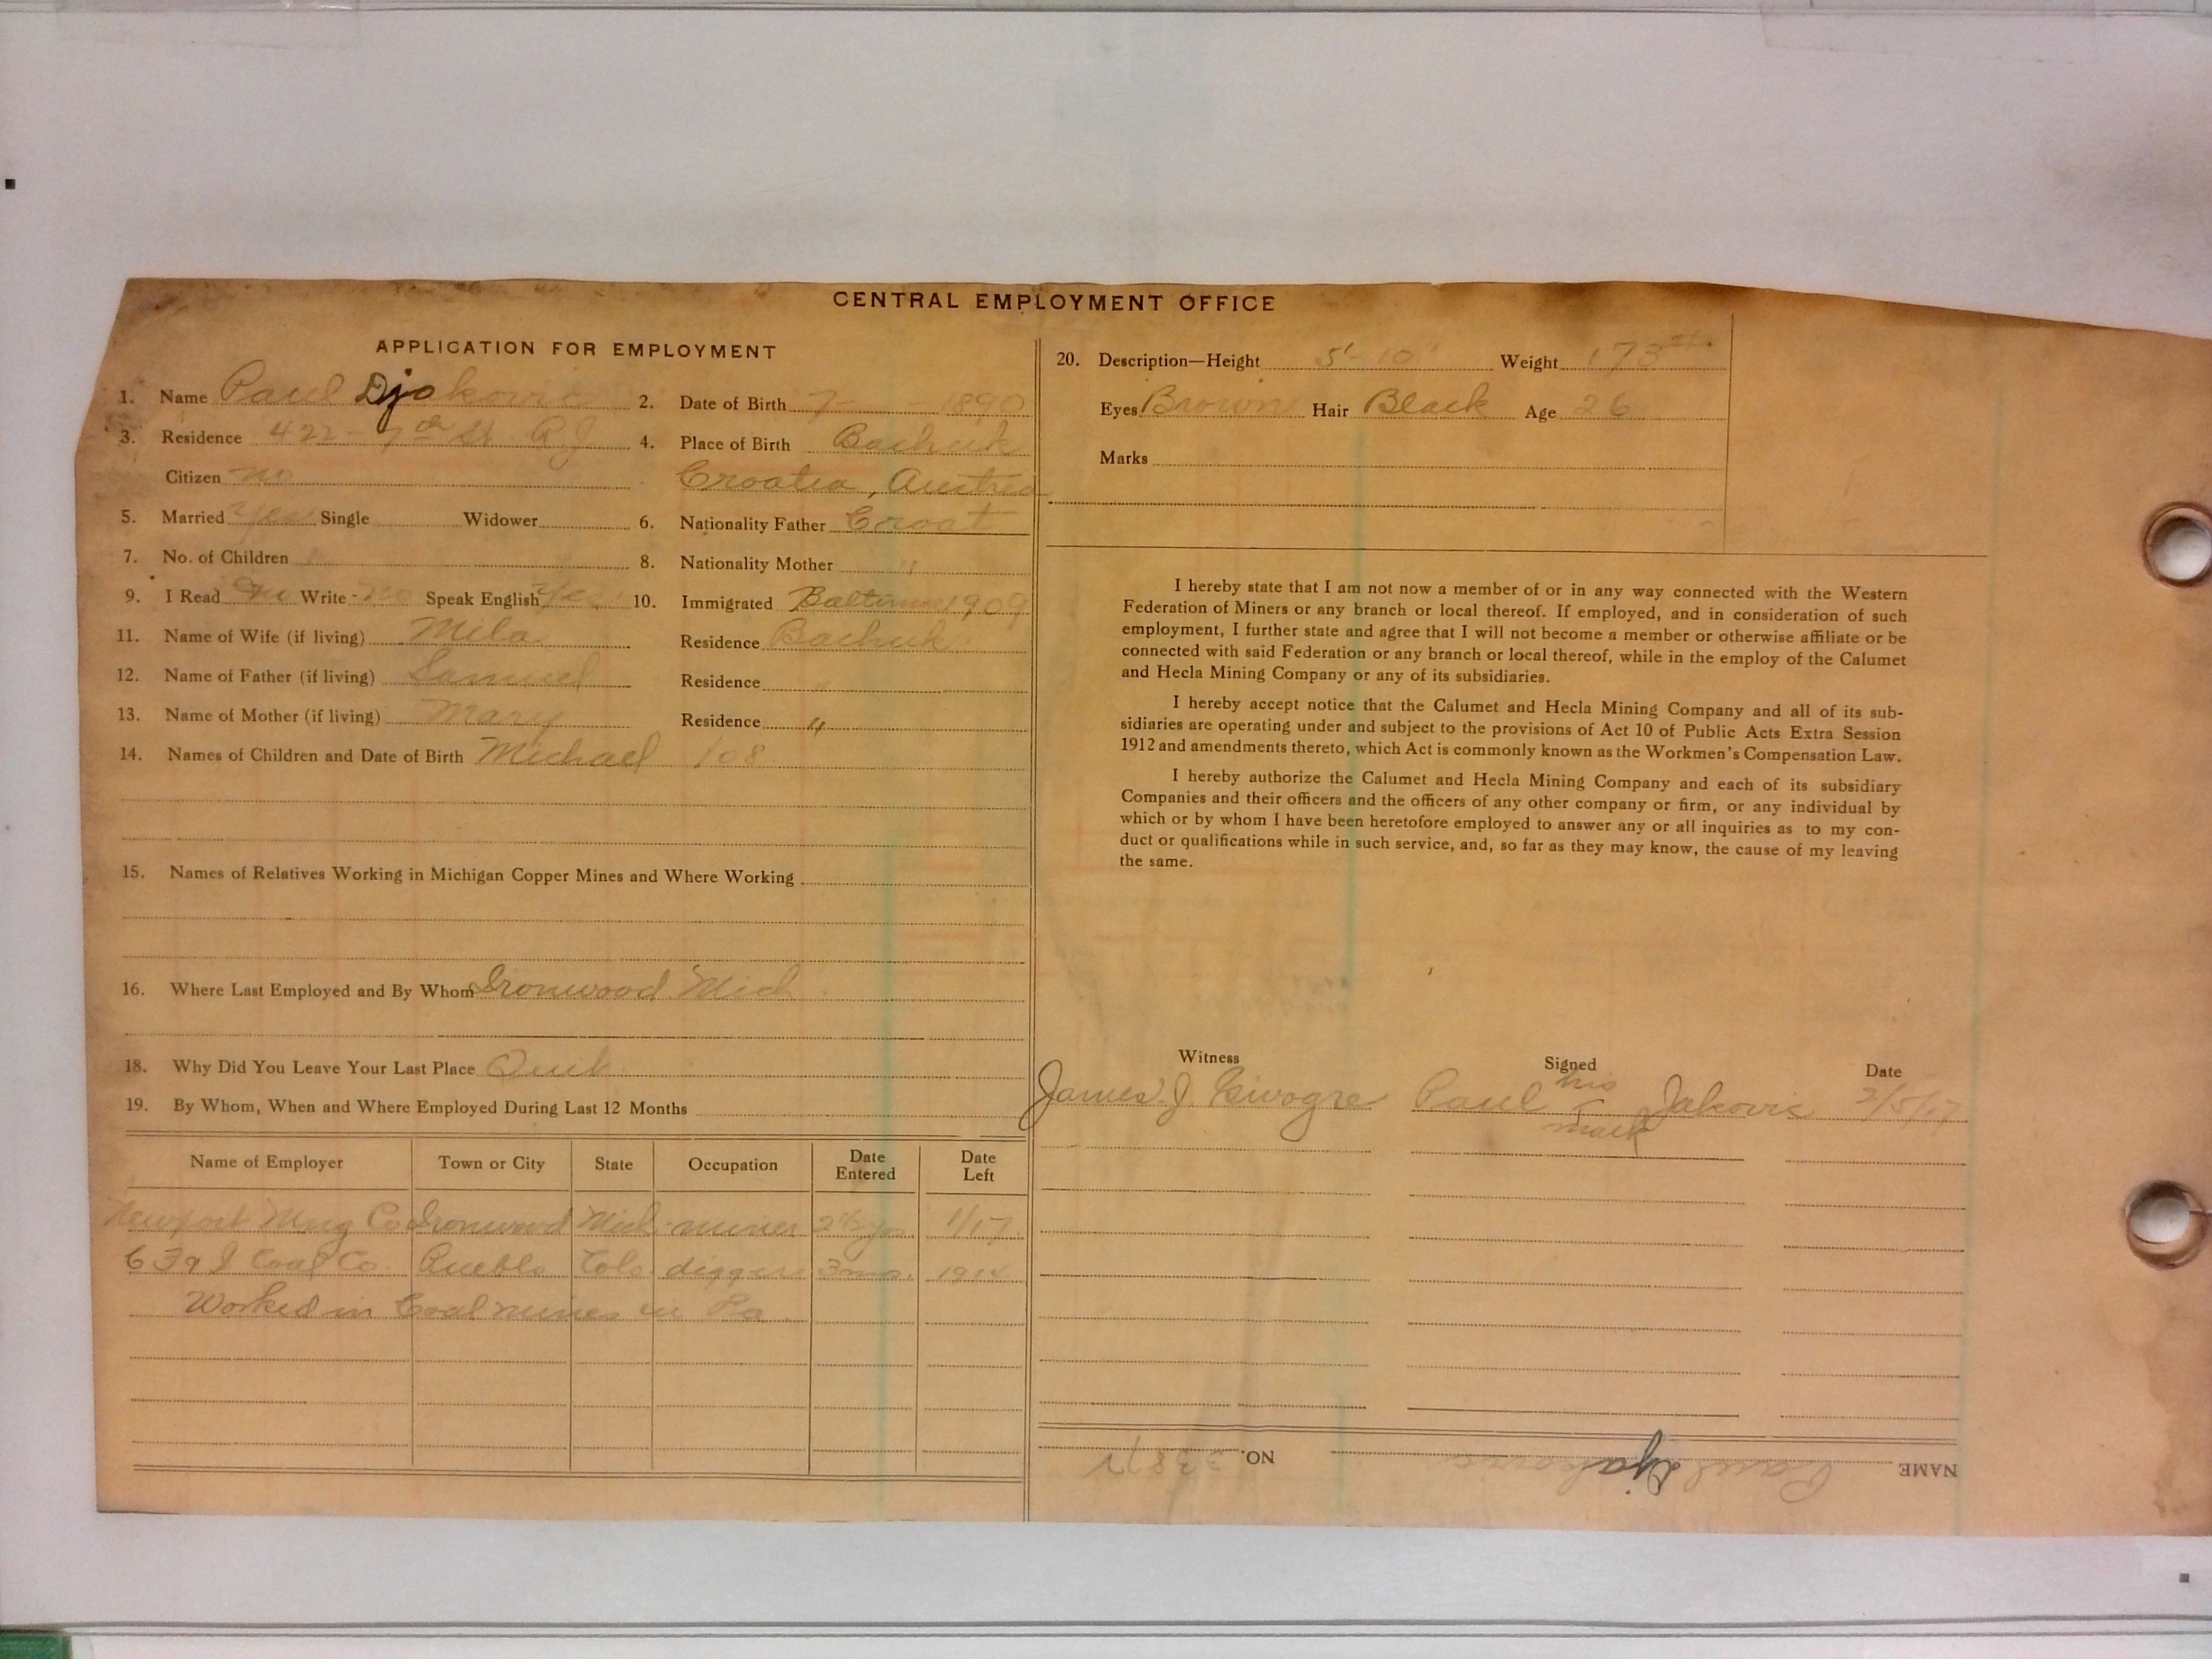 CENTRAL EMPLOYMENT OFFICE
APPLICATION FOR EMPLOYMENT
1. Name Paul Djakovic 2. Date of Birth 7- 1890
3. Residence 422 - 7th St. 4. Place of Birth Bachuk
Citizen no Croatia, Austria
5. Married yes Single Widower 6. Nationality Father Croat
7. No. of Children 1 8. Nationality Mother "
9. I Read No Write - no Speak English Yes 10. Immigrated Baltimore 1909
11. Name of Wife (if living) Mila Residence Bachuk
12. Name of Father (if living) Samuel Residence "
13. Name of Mother (if living) Mary Residence "
14. Names of Children and Date of Birth Michael 108
15. Names of Relatives Working in Michigan Copper Mines and Where Working
16. Where Last Employed and By Whom Ironwood Mich
18. Why Did You Leave Your Last Place Quit
19. By Whom, When and Where Employed During Last 12 Months
Name of Employer Town or City State Occupation Date Entered Date Left
Newport Mng Co Ironwood Mich. miner 2 1/2 yrs. 1/17.
Coal Co Pueblo Colo. digger 3 mo. 1914
Worked in Coal mines in Pa
20. Description—Height 5'-10" Weight 173
Eyes Brown Hair Black Age 26
Marks
I hereby state that I am not now a member of or in any way connected with the Western
Federation of Miners or any branch or local thereof. If employed, and in consideration of such
employment, I further state and agree that I will not become a member or otherwise affiliate or be
connected with said Federation or any branch or local thereof, while in the employ of the Calumet
and Hecla Mining Company or any of its subsidiaries.
I hereby accept notice that the Calumet and Hecla Mining Company and all of its sub-
sidiaries are operating under and subject to the provisions of Act 10 of Public Acts Extra Session
1912 and amendments thereto, which Act is commonly known as the Workmen's Compensation Law.
I hereby authorize the Calumet and Hecla Mining Company and each of its subsidiary
Companies and their officers and the officers of any other company or firm, or any individual by
which or by whom I have been heretofore employed to answer any or all inquiries as to my con-
duct or qualifications while in such service, and, so far as they may know, the cause of my leaving
the same.
Witness Signed Date
James J. Paul his mark Jakovic 2/5/17
NAME Paul Djakovic NO.